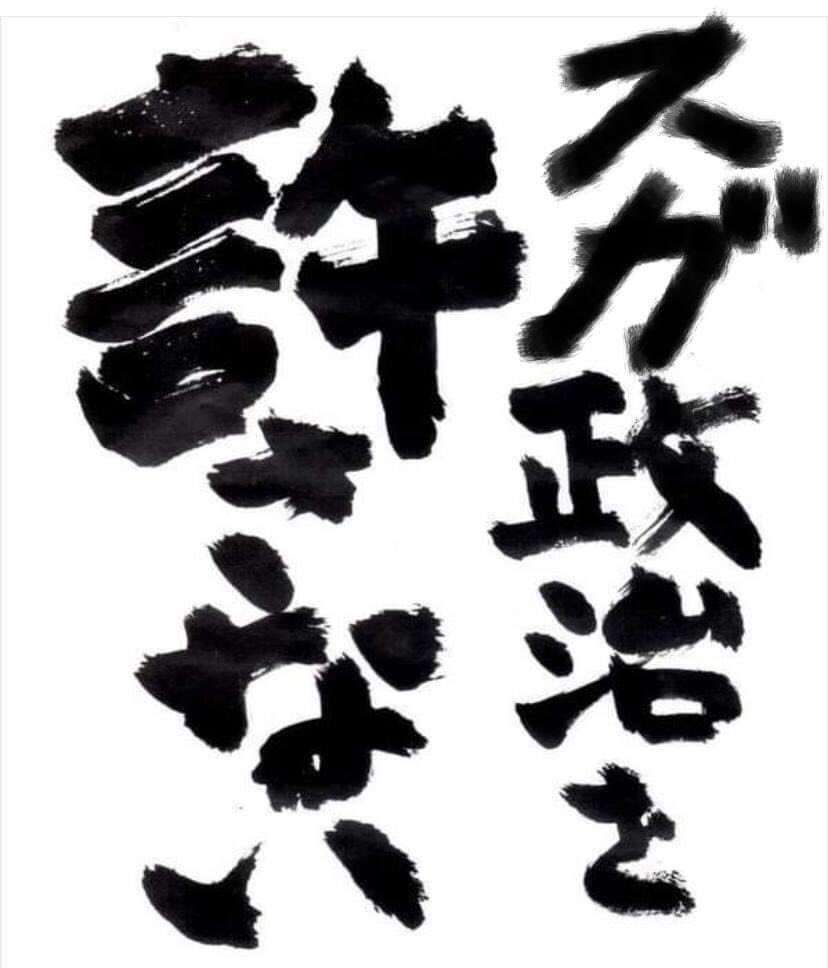 スガ政治を
許さない